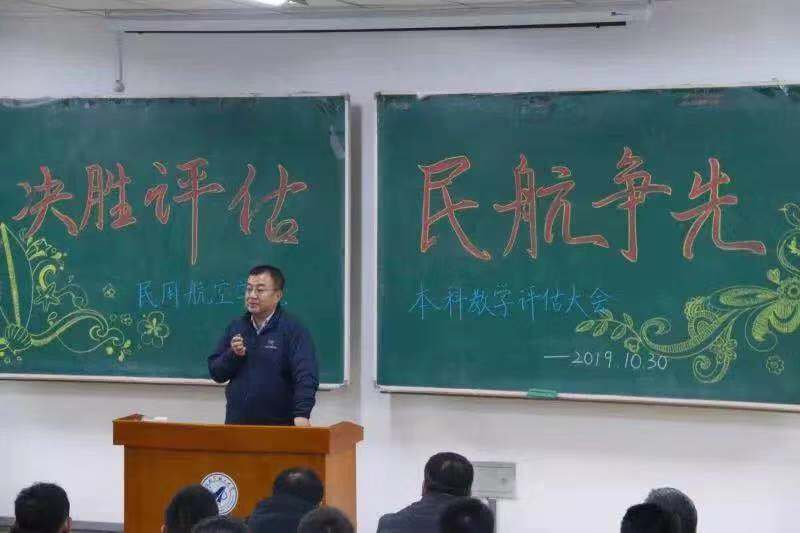 决胜评估
民航争先
民用航空
本科教学评估大会
—2019.10.30